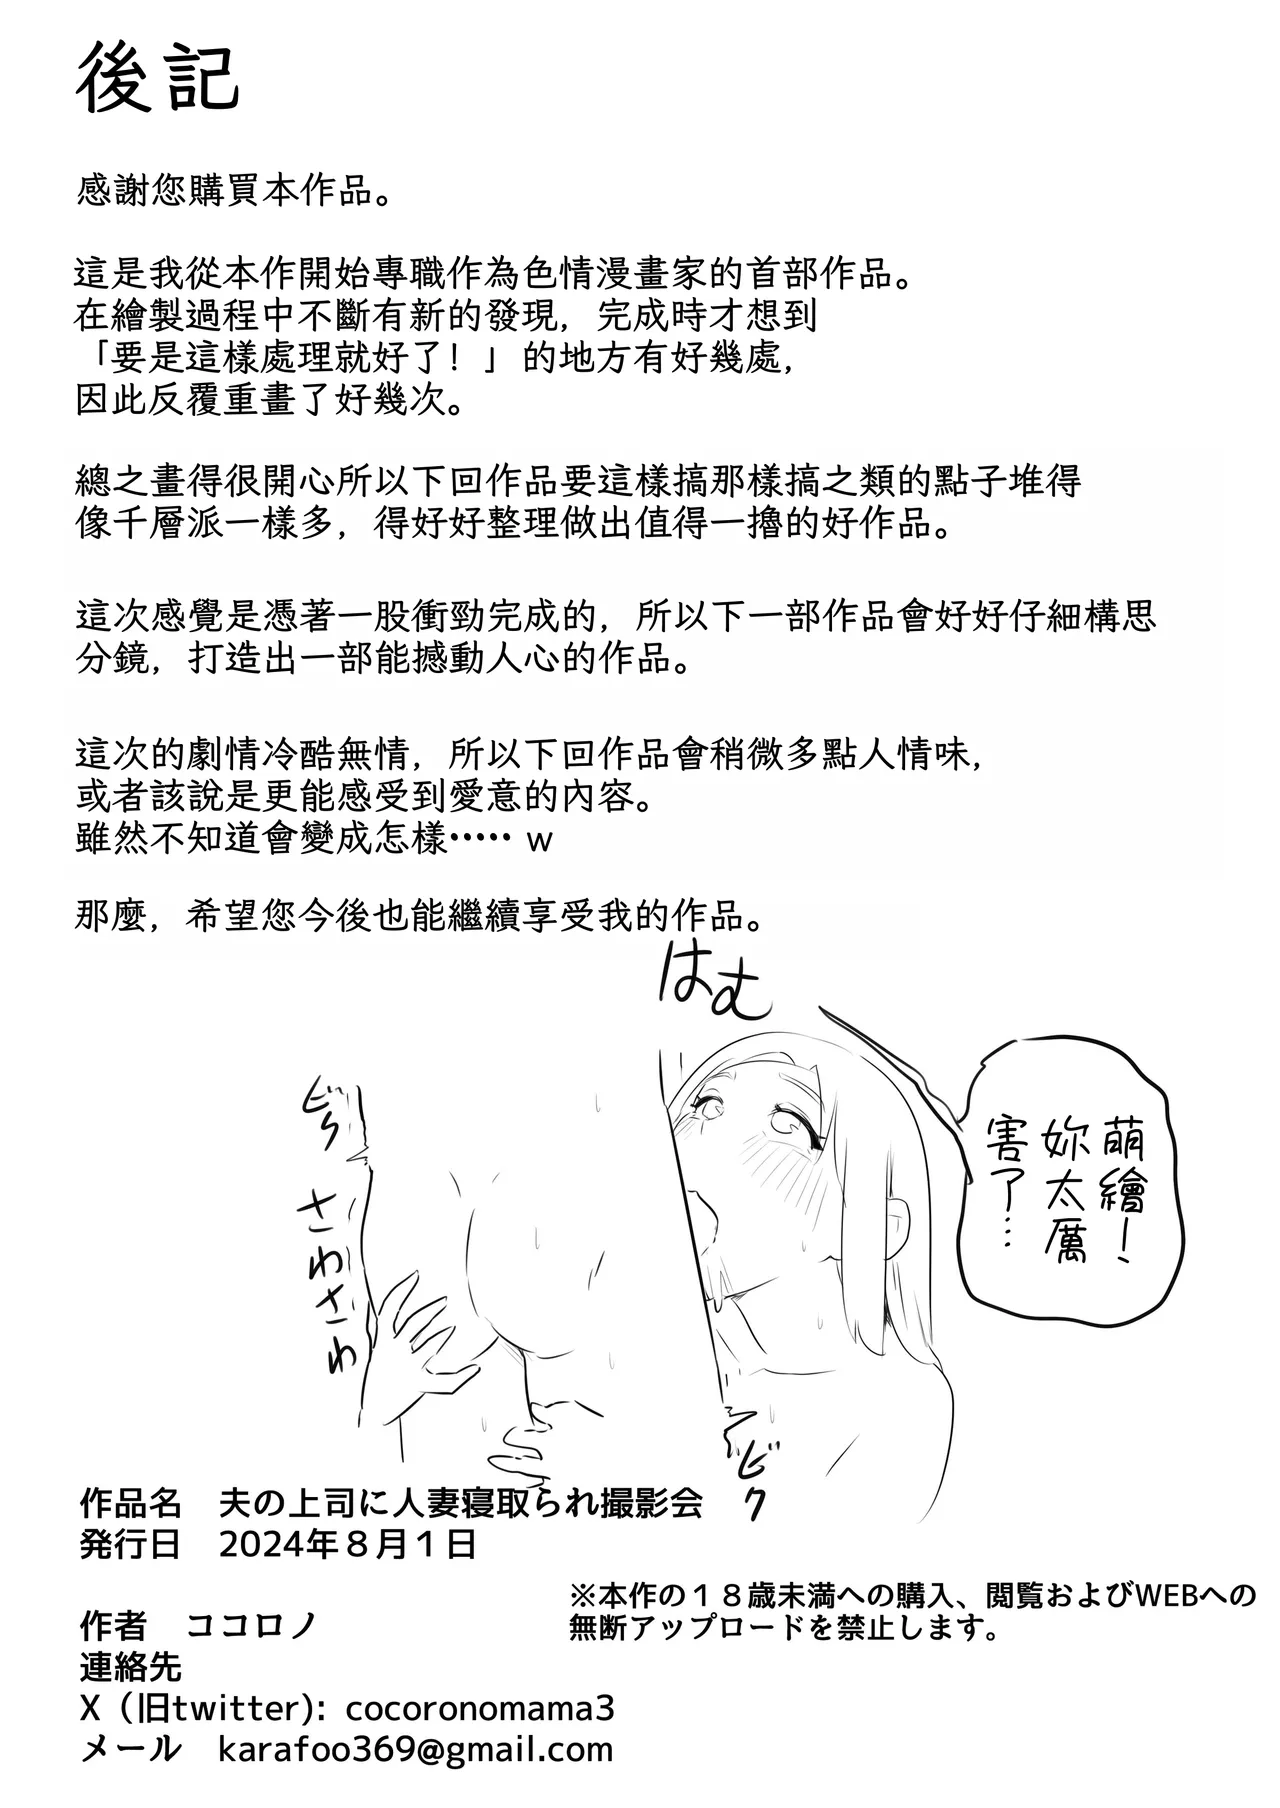 後記
感謝您購買本作品。
這是我從本作開始專職作為色情漫畫家的首部作品。
在繪製過程中不斷有新的發現，完成時才想到
「要是這樣處理就好了！」的地方有好幾處，
因此反覆重畫了好幾次。
總之畫得很開心所以下回作品要這樣搞那樣搞之類的點子堆得
像千層派一樣多，得好好整理做出值得一擼的好作品。
這次感覺是憑著一股衝勁完成的，所以下一部作品會好好仔細構思
分鏡，打造出一部能撼動人心的作品。
這次的劇情冷酷無情，所以下回作品會稍微多點人情味，
或者該說是更能感受到愛意的內容。
雖然不知道會變成怎樣…… w
那麼，希望您今後也能繼續享受我的作品。
はむ
萌繪！
妳太厲
害了…
ビク
さわさわ
ビク
作品名　夫の上司に人妻寝取られ撮影会
発行日　2024年８月１日
※本作の１８歳未満への購入、閲覧およびWEBへの
無断アップロードを禁止します。
作者　ココロノ
連絡先
X（旧twitter): cocoronomama3
メール　karafoo369@gmail.com